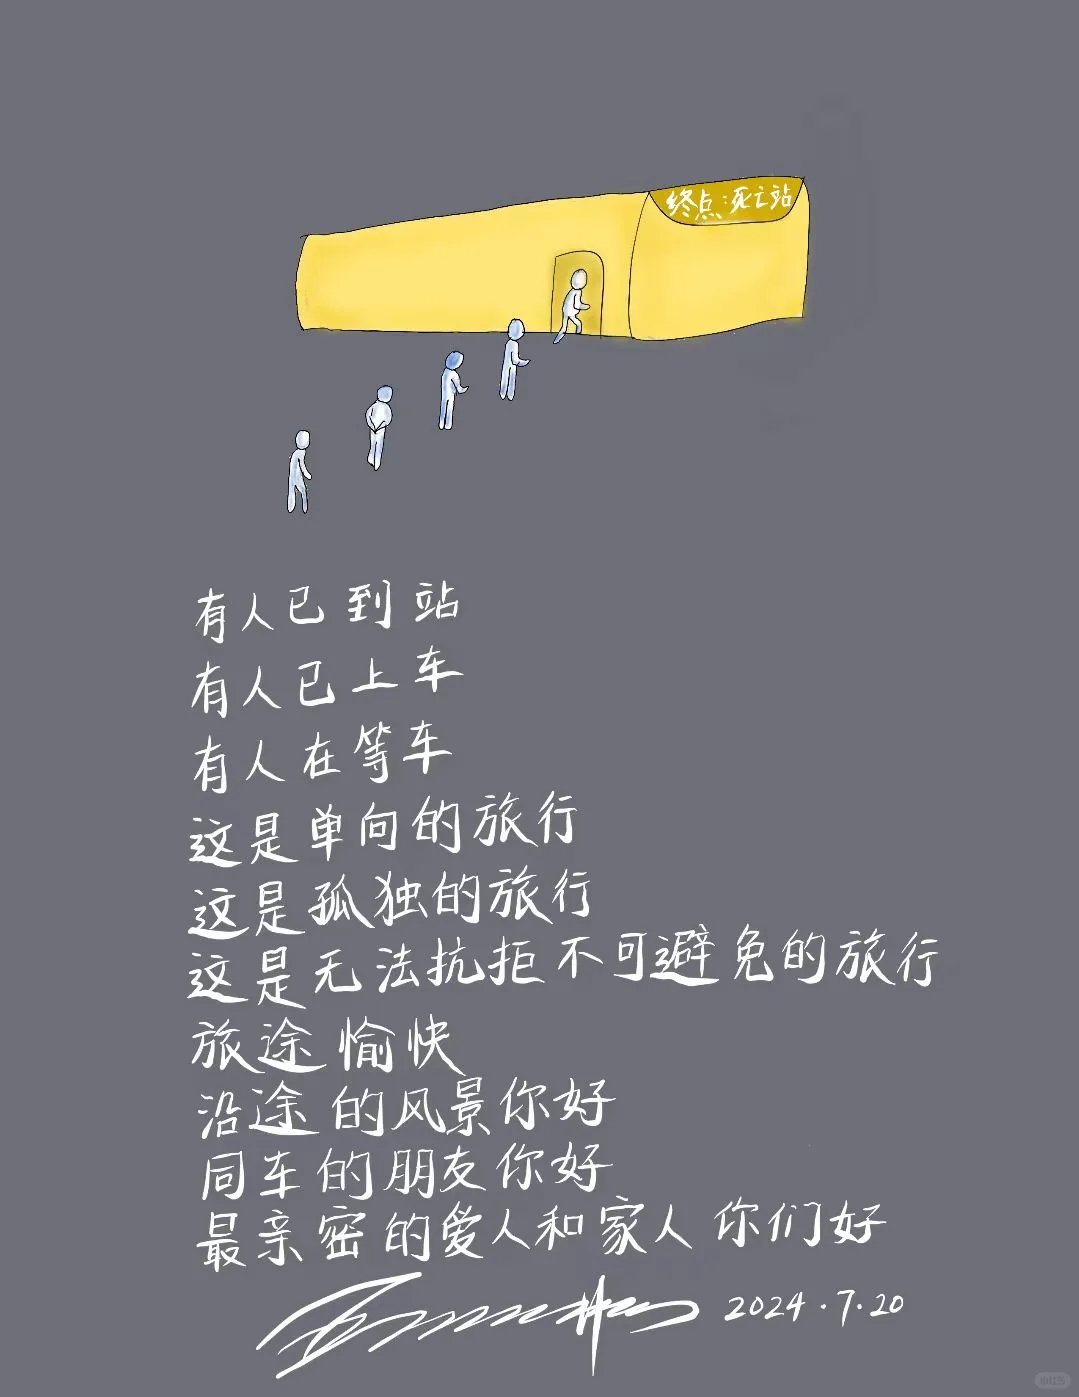 终点:死亡站
有人已到站
有人已上车
有人在等车
这是单向的旅行
这是孤独的旅行
这是无法抗拒不可避免的旅行
旅途愉快
沿途的风景你好
同车的朋友你好
最亲密的爱人和家人你们好
2024.7.20
小红书